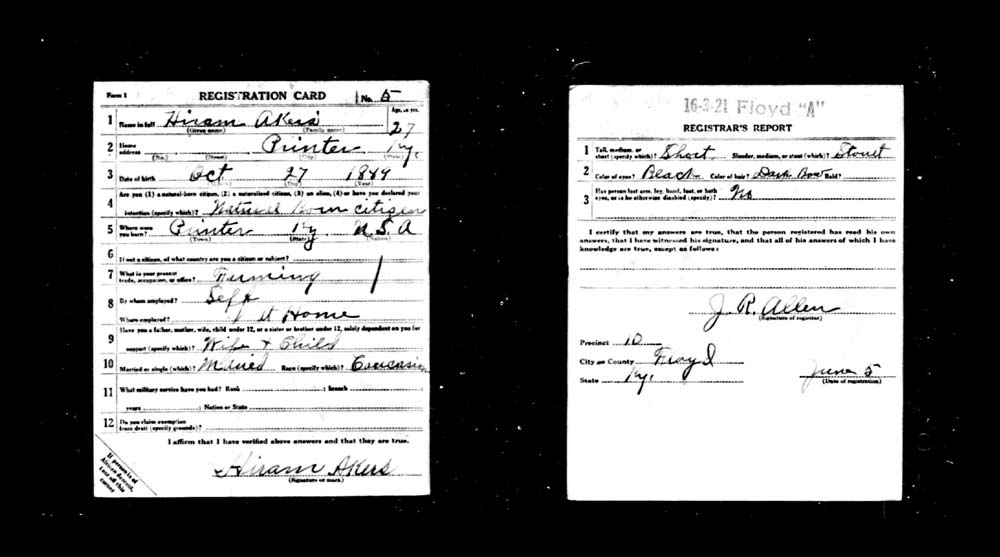 Form 1 REGISTRATION CARD No. 5
1 Name in full Hiram Akers Age, in yrs. 27
(Given name) (Family name)
2 Home address Printer Ky.
(No.) (Street) (City) (State)
3 Date of birth Oct 27 1889
(Month) (Day) (Year)
4 Are you (1) a natural-born citizen, (2) a naturalized citizen, (3) an alien, (4) or have you declared your
intention (specify which)? Natural Born citizen
5 Where were you born? Printer Ky U.S.A
(Town) (State) (Nation)
6 If not a citizen, of what country are you a citizen or subject?
7 What is your present trade, occupation, or office? Farming
8 By whom employed? Self
Where employed? At Home
9 Have you a father, mother, wife, child under 12, or a sister or brother under 12, solely dependent on you for
support (specify which)? Wife + Child
10 Married or single (which)? Maried Race (specify which)? Caucasian
11 What military service have you had? Rank ; branch
years ; Nation or State
12 Do you claim exemption from draft (specify grounds)?
I affirm that I have verified above answers and that they are true.
Hiram Akers
(Signature or mark)
If person is of
African descent,
tear off this
corner
16-3-21 Floyd "A"
REGISTRAR'S REPORT
1 Tall, medium, or short (specify which)? Short Slender, medium, or stout (which)? Stout
2 Color of eyes? Black Color of hair? Dark Bow Bald?
3 Has person lost arm, leg, hand, foot, or both
eyes, or is he otherwise disabled (specify)? No
I certify that my answers are true, that the person registered has read his own
answers, that I have witnessed his signature, and that all of his answers of which I have
knowledge are true, except as follows:
J. R. Allen
(Signature of registrar)
Precinct 10
City or County Floyd
State Ky. June 5
(Date of registration)